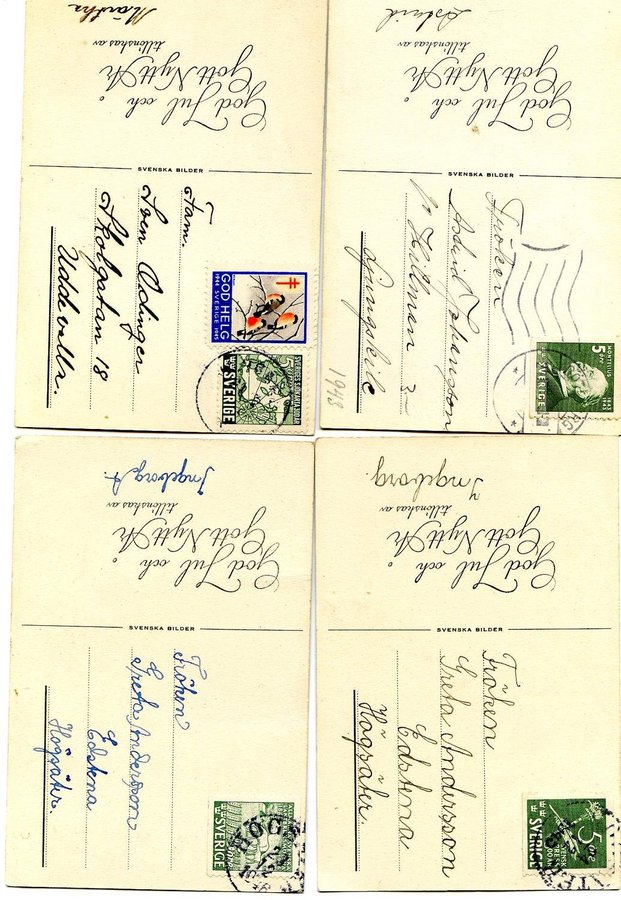 God Jul och
Gott Nytt År
tillönskas av
Märtha
SVENSKA BILDER
Fam.
Sven Odinger
Skolgatan 18
Uddevalla.
GOD HELG
1944 SVERIGE 1945
5
SVERIGES SJÖKARTA 300 ÅR
SVERIGE
God Jul och
Gott Nytt År
tillönskas av
Astrid
SVENSKA BILDER
Fröken
Astrid Johansson
Hillman
Ljungskile
1948
MONTELIUS
5 öre
1843
1943
SVERIGE
God Jul och
Gott Nytt År
tillönskas av
Ingeborg A.
SVENSKA BILDER
Fröken
Greta Andersson
Edstena
Högsäter.
SVERIGE
God Jul och
Gott Nytt År
tillönskas av
Ingeborg.
SVENSKA BILDER
Fröken
Greta Andersson
Edstena
Högsäter
5 öre
SVERIGE